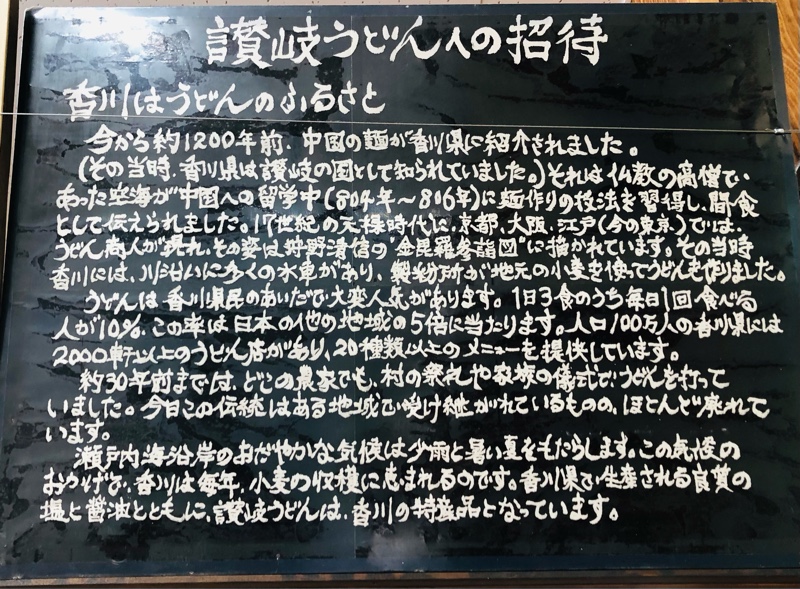 讃岐うどんへの招待
香川はうどんのふるさと
今から約1200年前、中国の麺が香川県に紹介されました。
(その当時、香川県は讃岐の国として知られていました。)それは仏教の高僧で
あった空海が中国への留学中(804年～806年)に麺作りの技法を習得し、間食
として伝えられました。17世紀の元禄時代に、京都、大阪、江戸(今の東京)では、
うどん商人が現れ、その姿は狩野清信の"金毘羅参詣図"に描かれています。その当時
香川には、川沿いに多くの水車があり、製粉所が地元の小麦を使ってうどんを作りました。
うどんは香川県民のあいだで大変人気があります。1日3食のうち毎日1回食べる
人が10%、この率は日本の他の地域の5倍に当たります。人口100万人の香川県には
2000軒以上のうどん店があり、20種類以上のメニューを提供しています。
約30年前までは、どこの農家でも、村の祭礼や家族の儀式でうどんを打って
いました。今日この伝統はある地域で受け継がれているものの、ほとんど廃れて
います。
瀬戸内海沿岸のおだやかな気候は少雨と暑い夏をもたらします。この気候の
おかげで、香川は毎年、小麦の収穫に恵まれるのです。香川県で生産される良質の
塩と醤油とともに、讃岐うどんは、香川の特産品となっています。